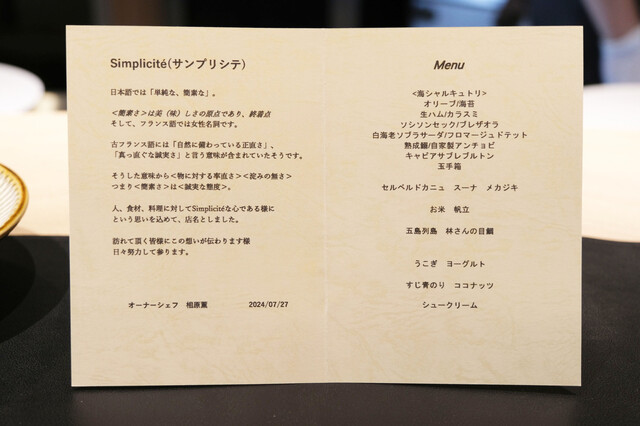 Simplicité(サンプリシテ)
日本語では「単純な、簡素な」。
<簡素さ>は美（味）しさの原点であり、終着点
そして、フランス語では女性名詞です。
古フランス語には「自然に備わっている正直さ」、
「真っ直ぐな誠実さ」と言う意味が含まれていたそうです。
そうした意味から<物に対する率直さ><淀みの無さ>
つまり<簡素さ>は<誠実な態度>。
人、食材、料理に対してSimplicitéな心である様に
という思いを込めて、店名としました。
訪れて頂く皆様にこの想いが伝わります様
日々努力して参ります。
オーナーシェフ　相原薫　2024/07/27
Menu
<海シャルキュトリ>
オリーブ/海苔
生ハム/カラスミ
ソシソンセック/ブレザオラ
白海老ソブラサーダ/フロマージュドテット
熟成鰤/自家製アンチョビ
キャビアサブレブルトン
玉手箱
セルベルドカニュ　スーナ　メカジキ
お米　帆立
五島列島　林さんの目鯛
うこぎ　ヨーグルト
すじ青のり　ココナッツ
シュークリーム